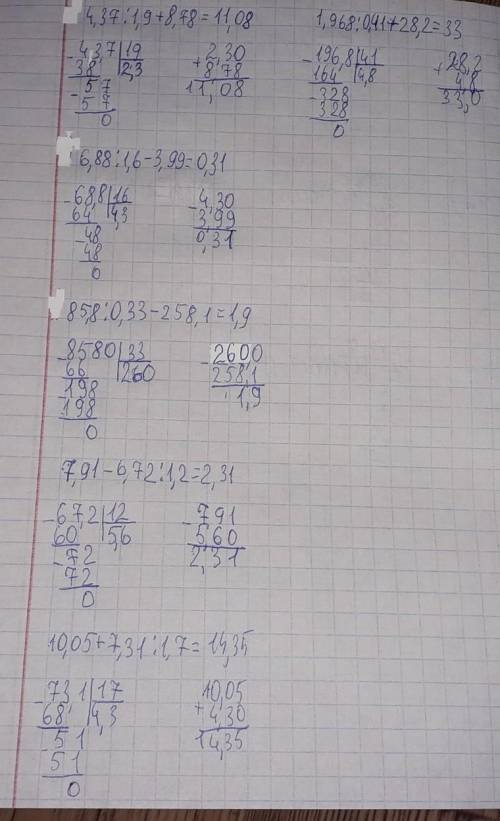 4,37:1,9+8,78=11,08
1,968:0,41+28,2=33
-4,37|19
38 |2,3
-57
57
0
2,30
+8,78
11,08
-196,8|41
164 |4,8
-328
328
0
+28,2
4,8
33,0
6,88:1,6-3,99=0,31
-68,8|16
64 |4,3
-48
48
0
-4,30
3,99
0,31
85,8:0,33-258,1=1,9
-8580|33
66 |260
-198
198
0
-2600
258,1
1,9
7,91-6,72:1,2=2,31
-67,2|12
60 |5,6
-72
72
0
-791
560
2,31
10,05+7,31:1,7=14,35
-731|17
68 |4,3
-51
51
0
10,05
+4,30
14,35